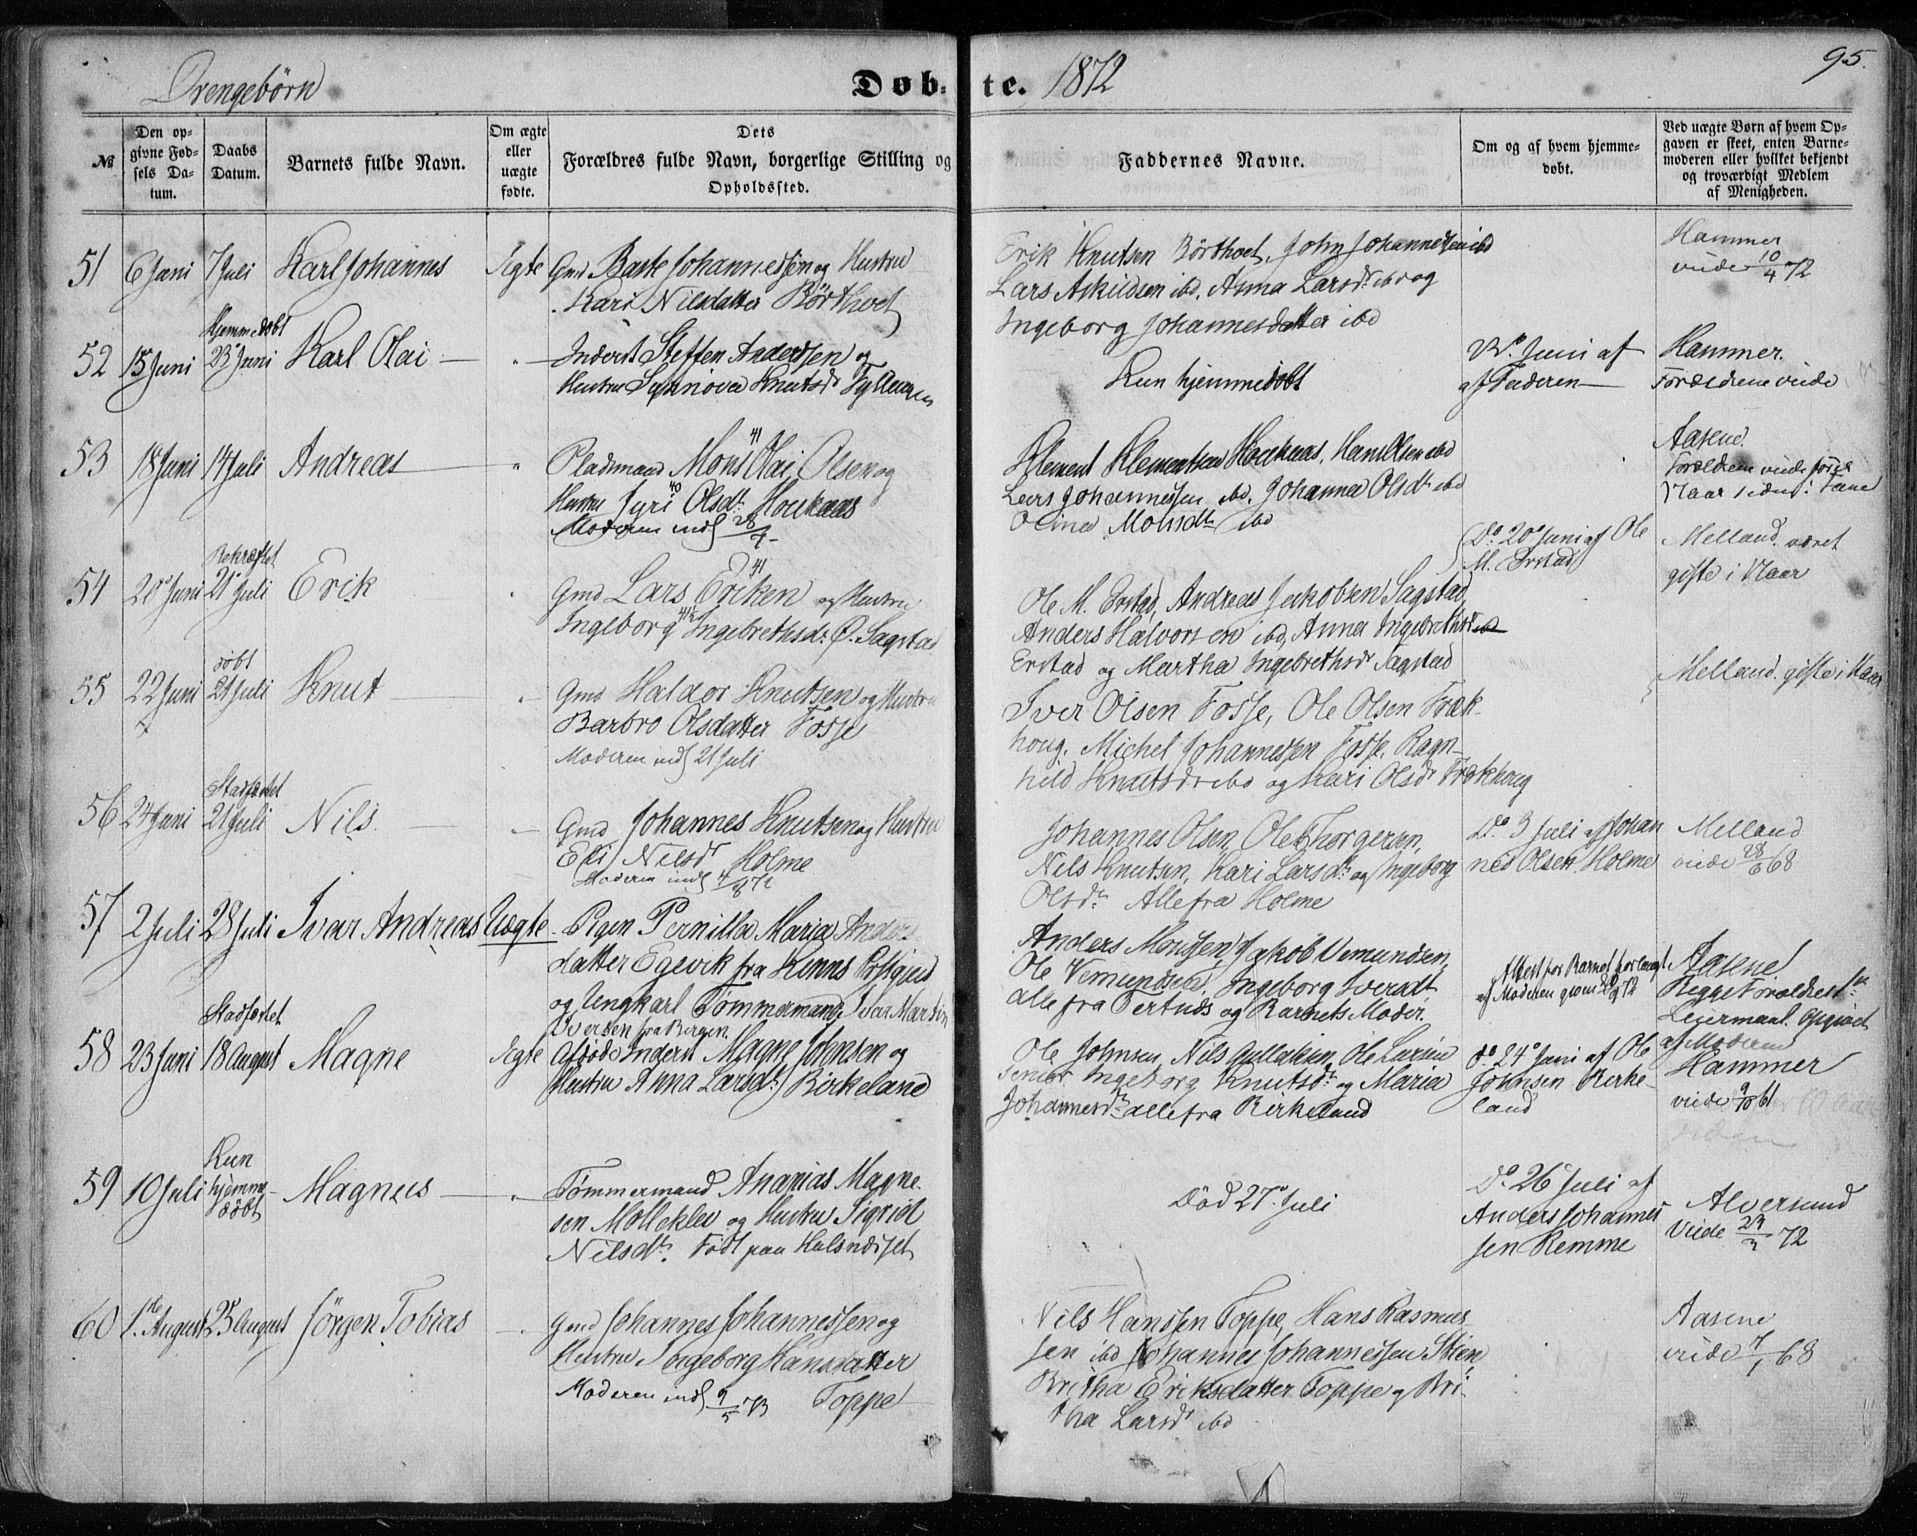 Drengebørn
Døb-te. 1872
95.
№
Den opgivne Fødsels Datum.
Daabs Datum.
Barnets fulde Navn.
Om ægte eller uægte fødte.
Dets Forældres fulde Navn, borgerlige Stilling og Opholdssted.
Faddernes Navne.
Om og af hvem hjemmedøbt.
Ved uægte Børn af hvem Opgaven er skeet, enten Barnemoderen eller hvilket bekjendt og troværdigt Medlem af Menigheden.
51 6 Juni 7 Juli Karl Johannes Ægte Gmd Johannessen og Hustru
Kari Nilsdatter Børthvet
Erik Knutsen Børthvet, John Johannessen ibd
Lars Askildsen ibd, Anna Larsdr ibd og
Ingeborg Johannesdatter ibd
Hammer
viede 10/4 72
52 15 Juni Hjemmedøbt 23 Juni Karl Olai
Inderst Steffen Anderssen og
Hustru Synnova Knutsdr
Kun hjemmedøbt
Juni af
af Faderen
Hammer.
Forældrene viede
53 18 Juni 14 Juli Andreas
Pladsmand Mons Olai 41 Olsen og
Hustru Syri 40 Olsdr Houkaas
Moderen indl 28/7
Klement Klementsen Houkaas, Hans Olsen ibd
Lars Johannessen ibd. Johanna Olsdr ibd
Olina Monsdr ibd
Aasene.
Forældrene viede
54 20 Juni Bekræftet 21 Juli Erik
Gmd Lars Eriksen 41 og Hustru
Ingeborg 41½ Ingebrethsdr Ø. Sagstad
Ole M. Erstad, Andreas Jakobsen Sagstad,
Anders Halvorsen ibd, Anna Ingebrethsdr
Erstad og Martha Ingebrethsdr Sagstad
Do 20 Juni af Ole
M. Erstad
Melland. været
gifte i Aar
55 22 Juni døbt 21 Juli Knut
Gmd Haldor Knutsen og Hustru
Barbro Olsdatter Fosse
Moderen indl 21 Juli
Iver Olsen Fosse, Ole Olsen Fræk-
houg. Michel Johannessen Fosse, Ragn-
hild Knutsdr ibd og Kari Olsdr Frækhoug
Melland. gifte i Aar
56 24 Juni Stadfæstet 21 Juli Nils.
Gmd Johannes Knutsen og Hustru
Eli Nilsdr Holme
Moderen indl 4/8 72
Johannes Olsen, Ole Thorgersen,
Nils Knutsen, Kari Larsdr og Ingeborg
Olsdr Alle fra Holme
Do 3 Juli af Johan
nes Olsen Holme
Melland
viede 28/6 68
57 2 Juli 28 Juli Ivar Andreas Uægte
Pigen Pernilla Maria Anders-
datter Egevik fra Kinns Prstgjeld
og Ungkarl Tømmermand Ivar Martin
Iversen fra Bergen.
Anders Monsen, Jakob Vemundsen,
Ole Vemundsen, Ingeborg Iversdr
alle fra Tertnæs og Barnets Moder.
Attest for Barnet forlangt
af Moderen
Aasene.
Begge Forældres 1ste
Leiermaal. Opgivet
af Moderen
58 23 Juni Stadfæstet 18 August Magne Ægte
Afdøde Inderst Magne Johnsen og
Hustru Anna Larsdr Birkeland
Ole Johnsen, Nils Gullaksen, Ole Larsen
senior Ingeborg Knutsdr og Maria
Johannesdr alle fra Birkeland
do 24 Juni af Ole
Johnsen Birke-
land
Hammer
viede 9/10 61
59 10 Juli Kun hjemme-døbt Magnus
Tømmermand Ananias Magne-
sen Mølleklev og Hustru Sigrid
Nilsdr Født paa Halsnæset
Død 27 Juli
Do 26 Juli af
Anders Johannes-
sen Remme
Alversund
Viede 23/3 72
60 1ste August 25 August Jörgen Tobias
Gmd Johannes Johannessen og
Hustru Ingeborg Hansdatter
Moderen indl 9/5 73 Toppe
Nils Hanssen Toppe, Hans Rasmus-
sen ibd Johannes Johannessen Stien
Britha Eriksdatter Toppe og Bri-
tha Larsdr ibd
Aasene
viede 7/1 68